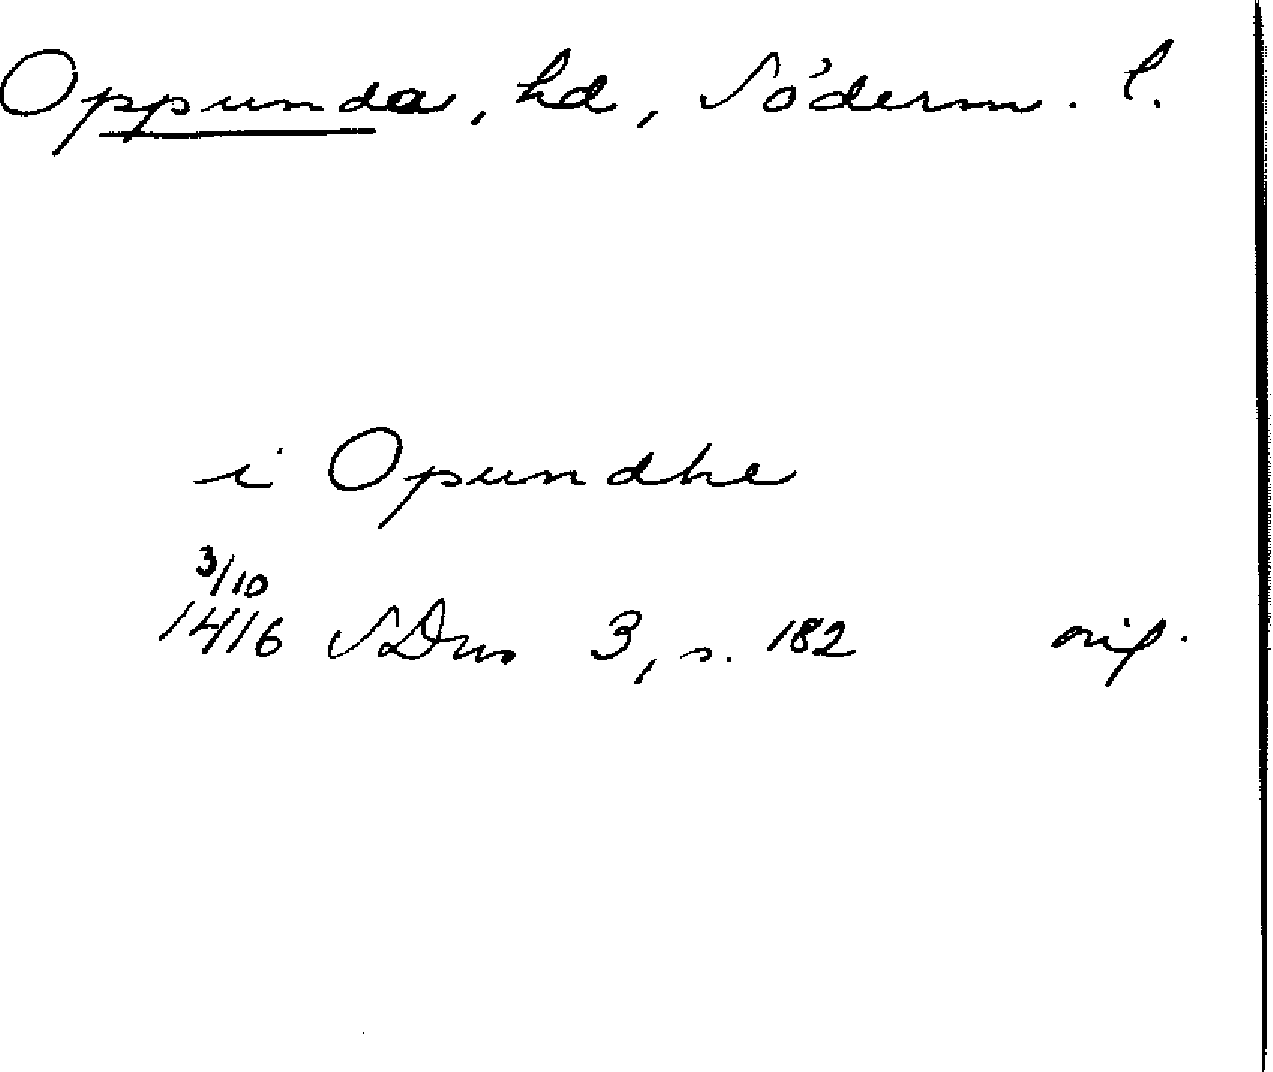 Oppunda, hd, Söderm. l.
i Opundhe
3/10
1416 SDns 3, s. 182 orig.